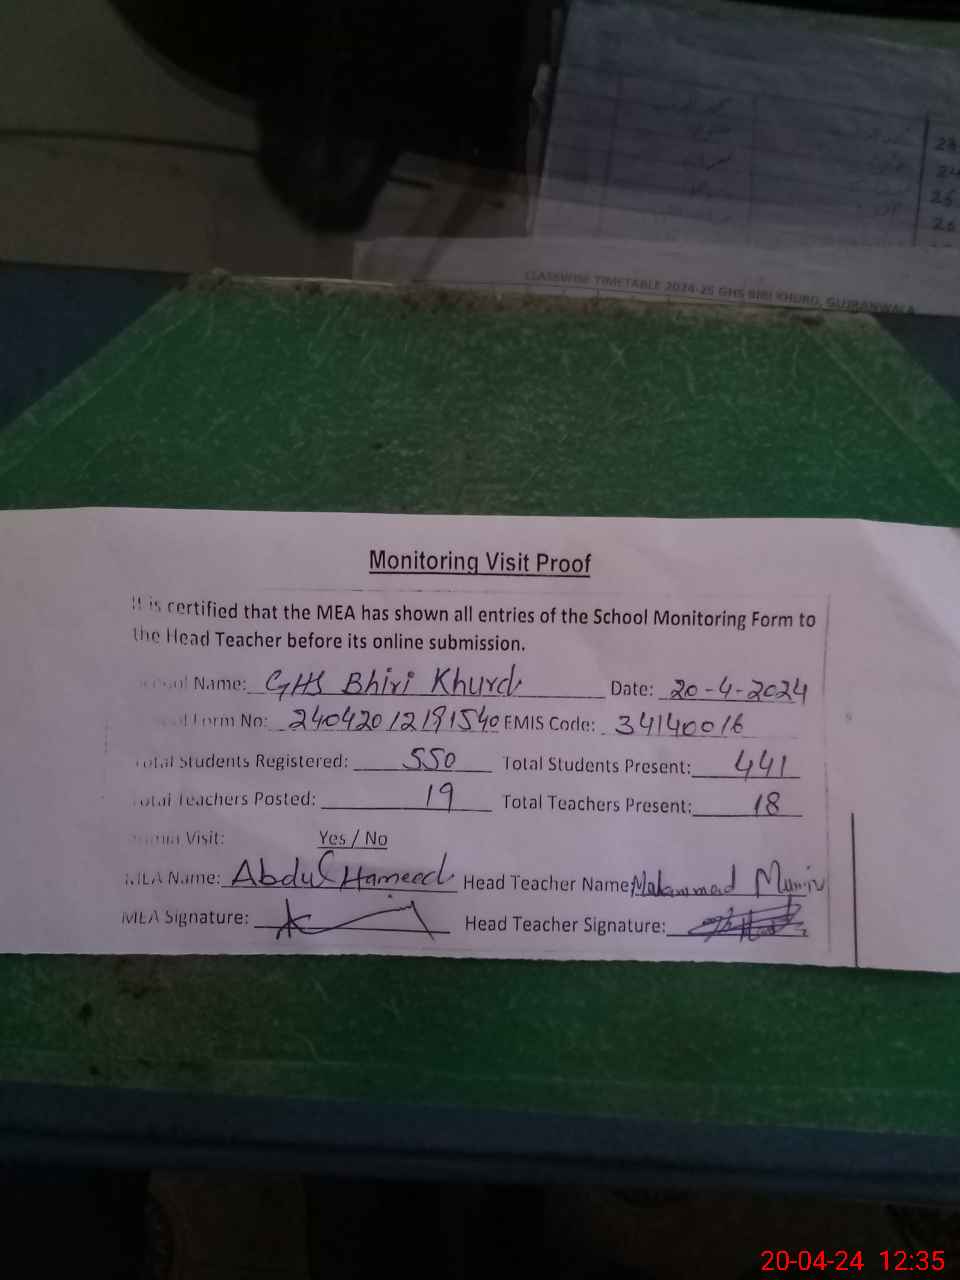 24
25
26
CLASSWISE TIMETABLE 2024-25 GHS BIRI KHURD, GUJRANWALA
Monitoring Visit Proof
It is certified that the MEA has shown all entries of the School Monitoring Form to
the Head Teacher before its online submission.
School Name: GHS Bhiri Khurd Date: 20-4-2024
Form No: 24042012191540 EMIS Code: 34140016
Total Students Registered: 550 Total Students Present: 441
Total Teachers Posted: 19 Total Teachers Present: 18
Visit: Yes / No
MEA Name: Abdul Hameed Head Teacher Name Mohammad Munir
MEA Signature: Head Teacher Signature:
20-04-24 12:35